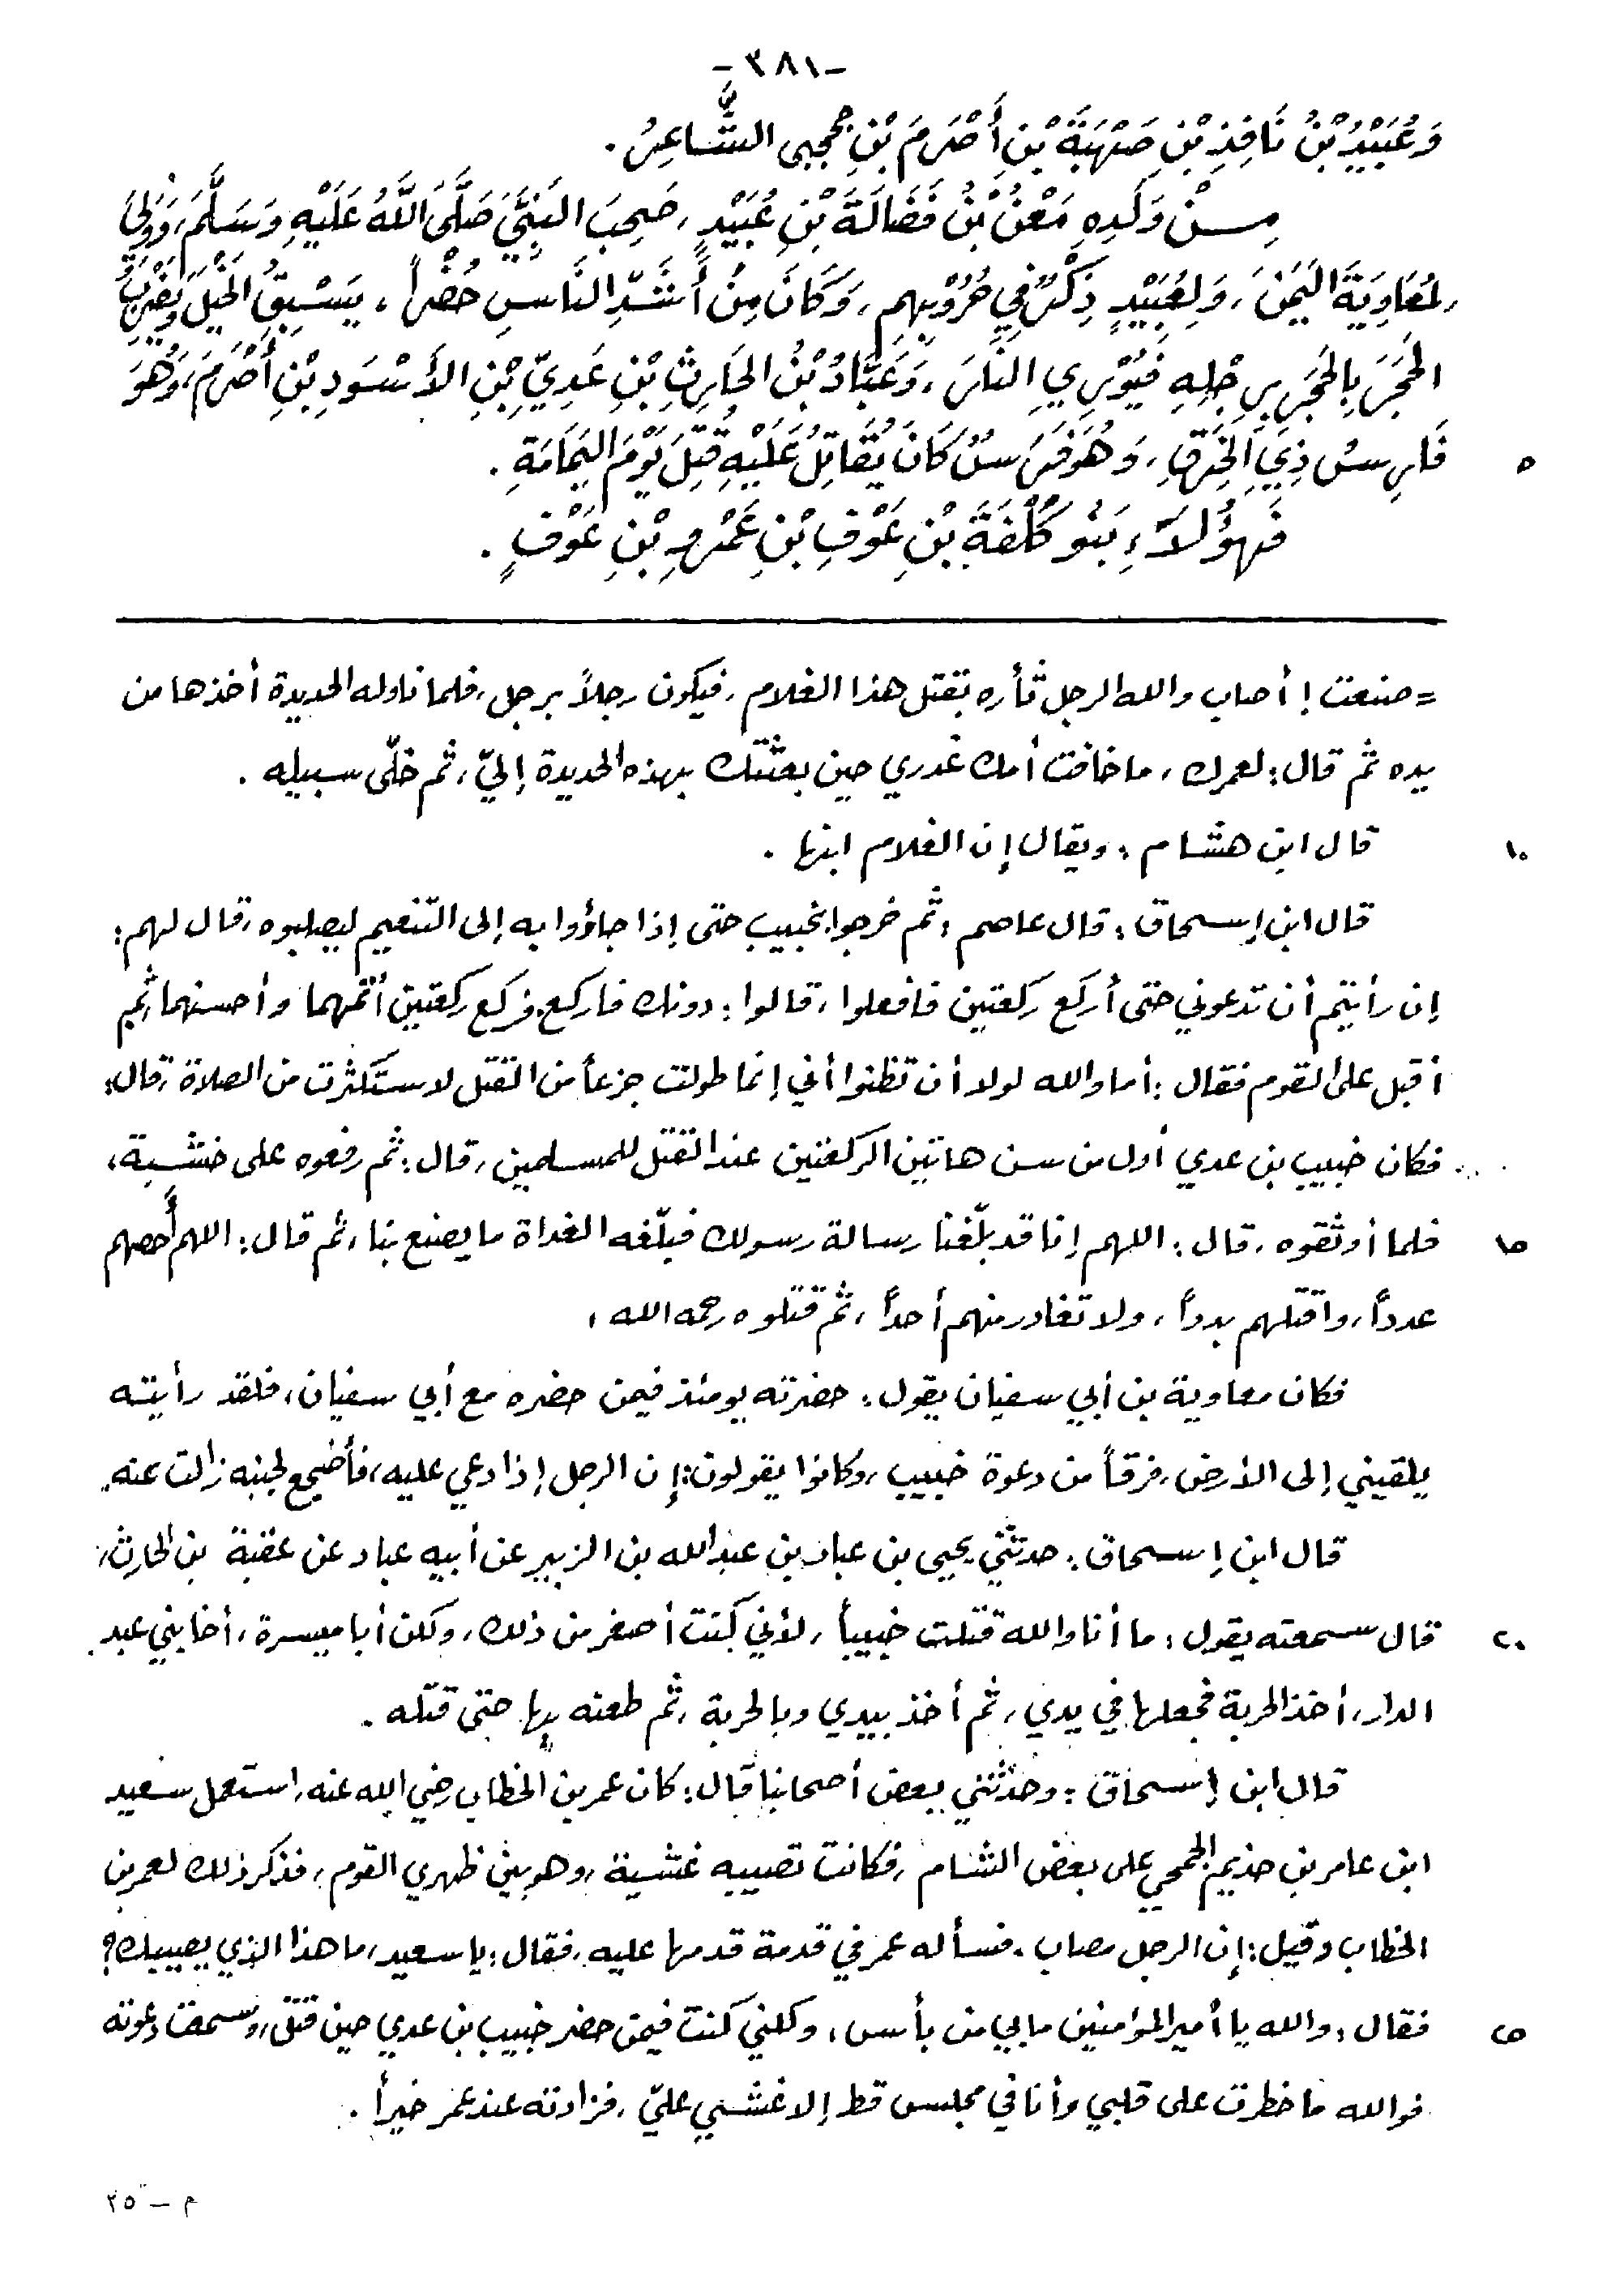 -٣٨١-
وَعُبَيْدُ بْنُ نَافِذِ بْنِ صَهْبَةَ بْنِ أَصْرَمَ بْنِ جحجبى الشَّاعِرُ .
مِنْ وَلَدِهِ مَعْنُ بْنُ فَضَالَةَ بْنِ عُبَيْدٍ، صَحِبَ النَّبِيَّ صَلَّى اللَّهُ عَلَيْهِ وَسَلَّمَ، وَوَلِيَ
لِمُعَاوِيَةَ الْيَمَنَ، وَلِعُبَيْدٍ ذِكْرٌ فِي حُرُوْبِهِم، وَكَانَ مِنْ أَشَدِّ النَّاسِ حُضْراً، يَسْبِقُ الخَيْلَ وَيَضْرِبُ
الحَجَرَ بِالحَجَرِ بِرِجْلِهِ فَيُوْرِي النَّارَ، وَعَبَّادُ بْنُ الحَارِثِ بْنِ عَدِيِّ بْنِ الأَسْوَدِ بْنِ أَصْرَمَ، وَهُوَ
فَارِسُ ذِي الخِرَقِ، وَهُوَ فَرَسٌ كَانَ يُقَاتِلُ عَلَيْهِ قُتِلَ يَوْمَ اليَمَامَةِ . ٥
فَهؤُلاَءِ بَنُو كُلْفَةَ بْنِ عَوْفِ بْنِ عَمْرِو بْنِ عَوْفٍ .
= صنعت! أصاب والله الرجل ثأره بقتل هذا الغلام، فيكون رجلاً برجل، فلما ناوله الحديدة أخذها من
يده ثم قال: لعمرك، ما خافت أمك غدري حين بعثتك بهذه الحديدة إليّ، ثم خلّى سبيله .
قال ابن هشام: ويقال إن الغلام ابنها . ١٠
قال ابن إسحاق: قال عاصم: ثم خرجوا بخبيب حتى إذا جاؤوا به إلى التنعيم ليصلبوه، قال لهم:
إن رأيتم أن تدعوني حتى أركع ركعتين فافعلوا، قالوا: دونك فاركع. فركع ركعتين أتمهما وأحسنهما، ثم
أقبل على القوم فقال: أما والله لولا أن تظنوا أني إنما طولت جزعاً من القتل لاستكثرت من الصلاة، قال:
فكان خبيب بن عدي أول من سن هاتين الركعتين عند القتل للمسلمين، قال: ثم رفعوه على خشبة،
فلما أوثقوه، قال: اللهم إنا قد بلّغنا رسالة رسولك فبلّغه الغداة ما يصنع بنا، ثم قال: اللهم أحصهم ١٥
عدداً، واقتلهم بدداً، ولا تغادر منهم أحداً، ثم قتلوه رحمه الله،
فكان معاوية بن أبي سفيان يقول: حضرته يومئذ فيمن حضره مع أبي سفيان، فلقد رأيته
يلقيني إلى الأرض، فرقاً من دعوة خبيب، وكانوا يقولون: إن الرجل إذا دعي عليه، فأضجع لجنبه زالت عنه.
قال ابن إسحاق: حدثني يحيى بن عباد بن عبدالله بن الزبير عن أبيه عباد عن عقبة بن الحارث،
قال سمعته يقول: ما أنا والله قتلت خبيباً، لأني كنت أصغر من ذلك، ولكن أبا ميسرة، أخا بني عبد ٢٠
الدار، أخذ الحربة فجعلها في يدي، ثم أخذ بيدي وبالحربة، ثم طعنه بها حتى قتله .
قال ابن إسحاق: وحدثني بعض أصحابنا قال: كان عمر بن الخطاب رضي الله عنه، استعمل سعيد
ابن عامر بن حذيم الجمحي على بعض الشام، فكانت تصيبه غشية، وهو بين ظهري القوم، فذكر ذلك لعمر بن
الخطاب وقيل: إن الرجل مصاب. فسأله عمر في قدمة قدمها عليه، فقال: يا سعيد، ما هذا الذي يصيبك؟
فقال: والله يا أمير المؤمنين ما بي من بأس، ولكني كنت فيمن حضر خبيب بن عدي حين قتل، وسمعت دعوته ٢٥
فوالله ما خطرت على قلبي وأنا في مجلس قط إلا غشي عليّ، فزادته عند عمر خيراً .
م - ٢٥